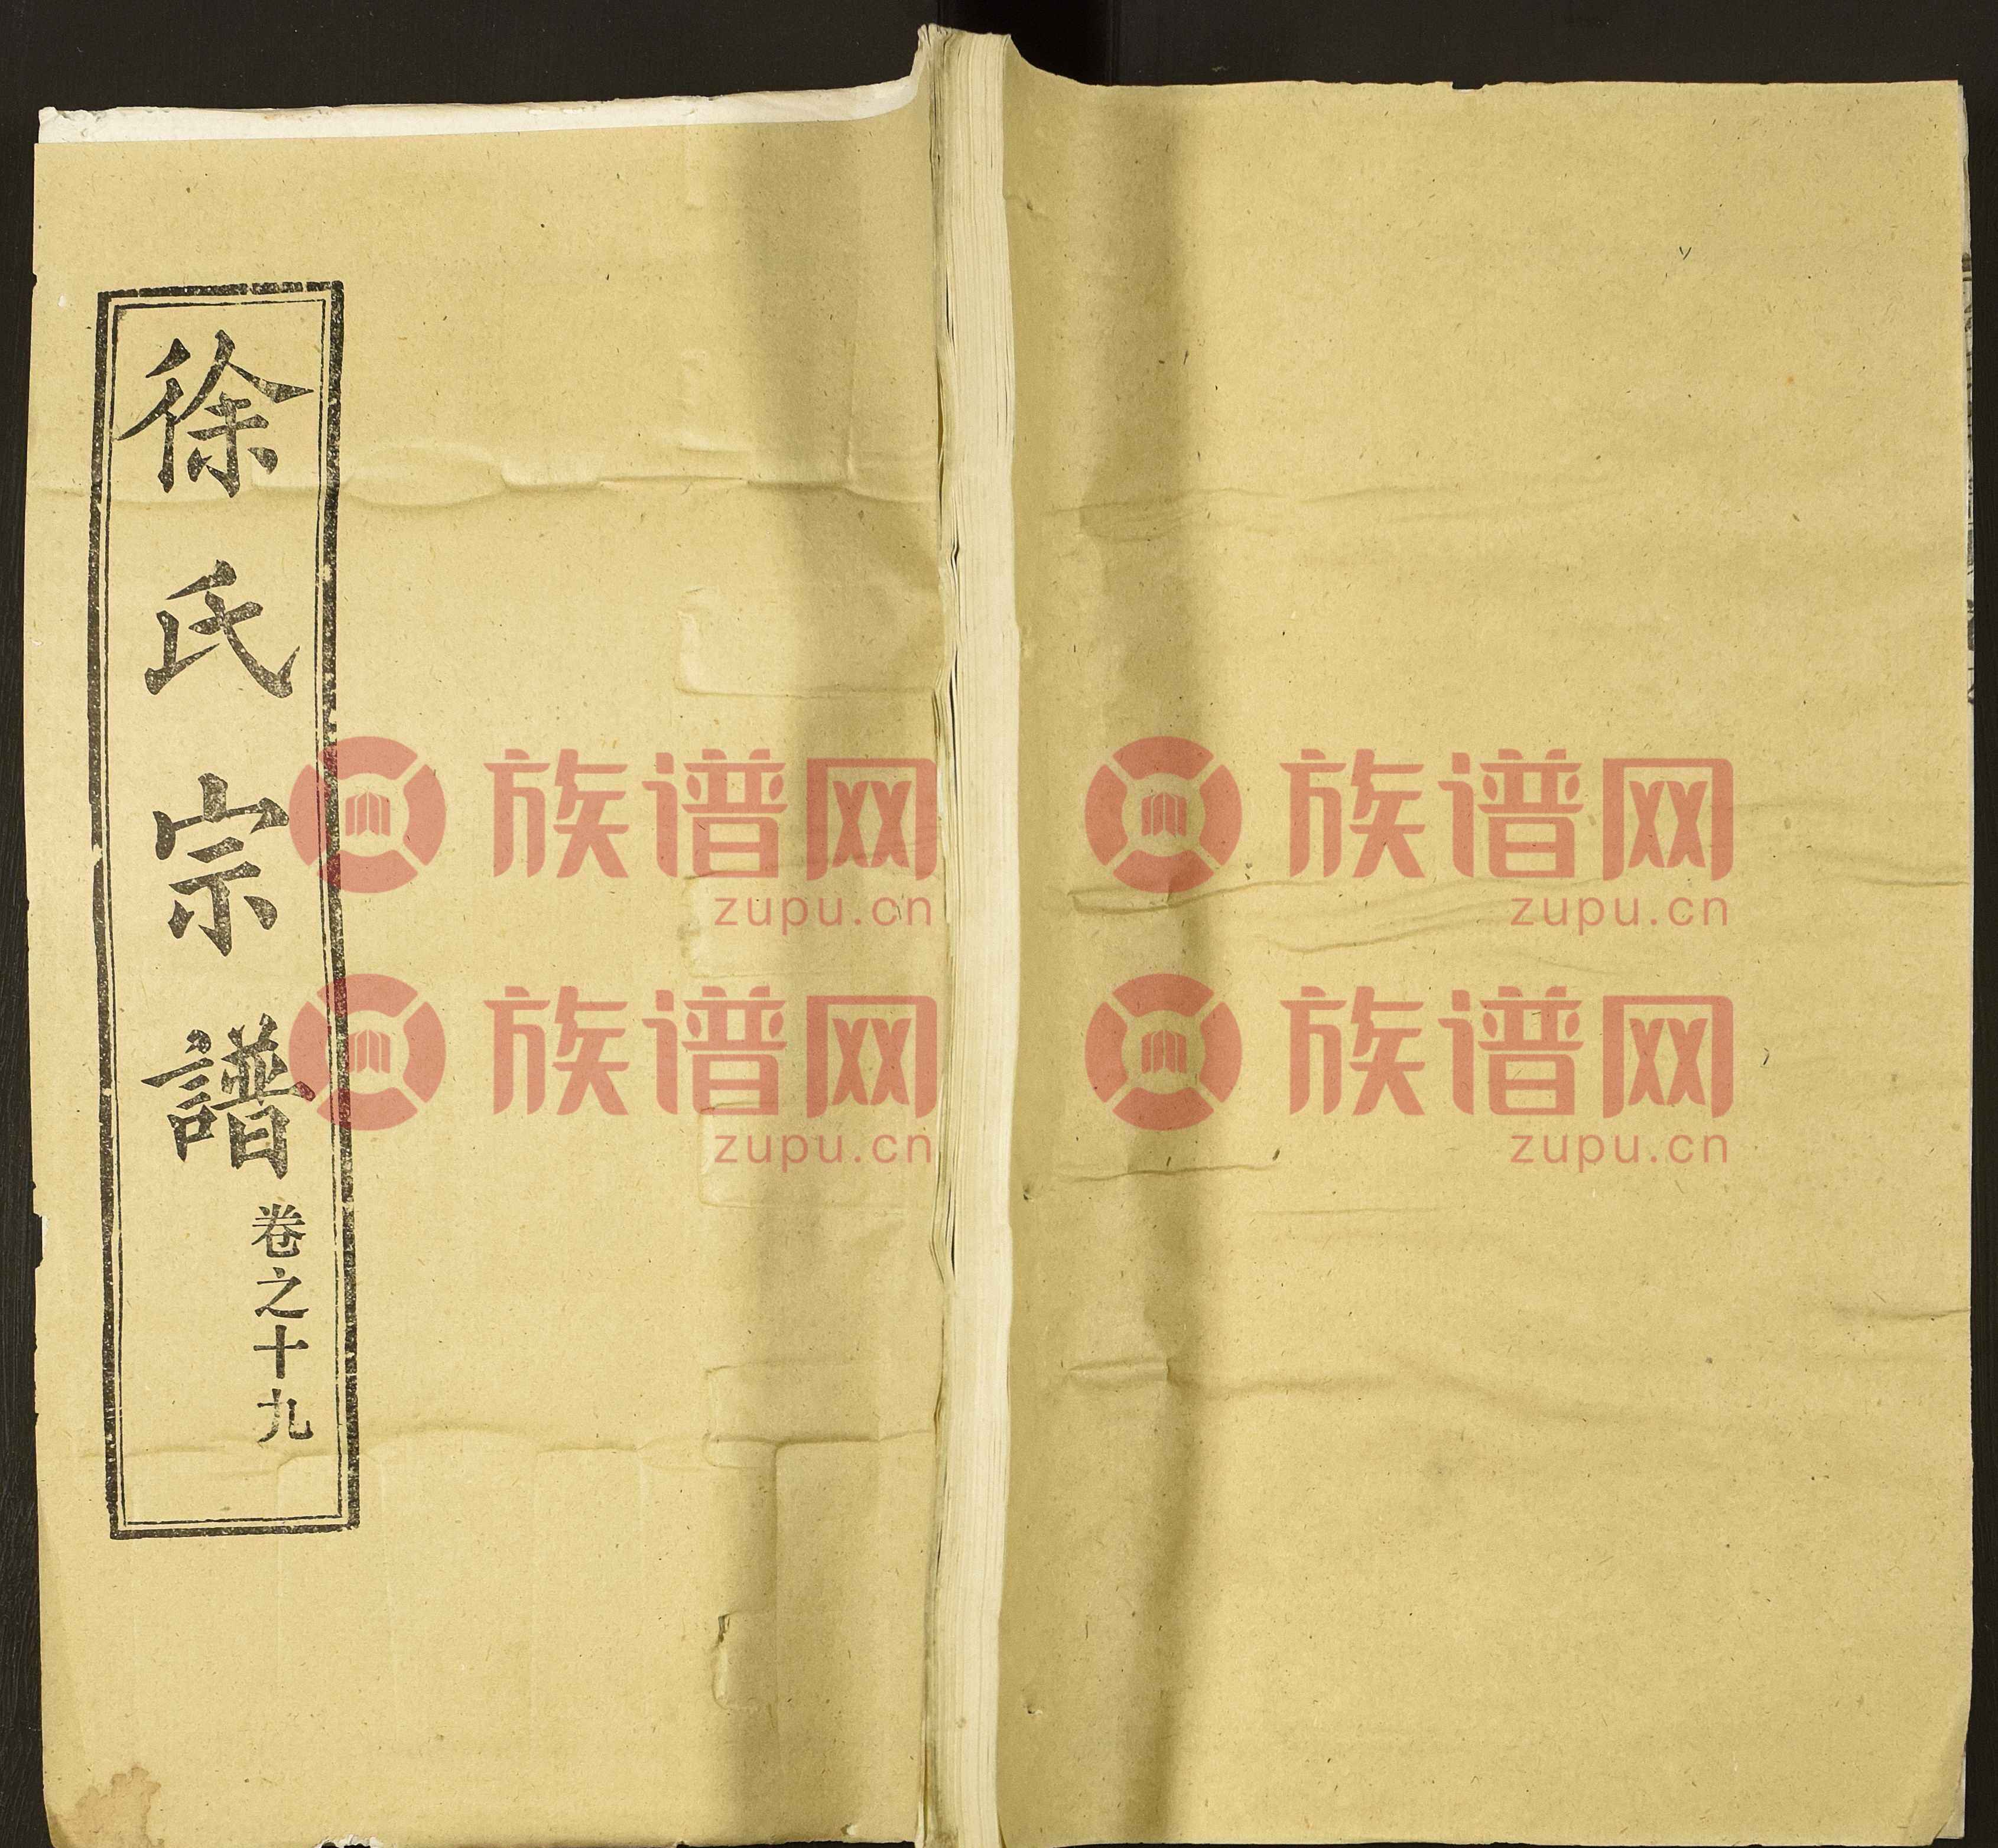 徐氏宗譜
卷之十九
族谱网
zupu.cn
族谱网
zupu.cn
族谱网
zupu.cn
族谱网
zupu.cn